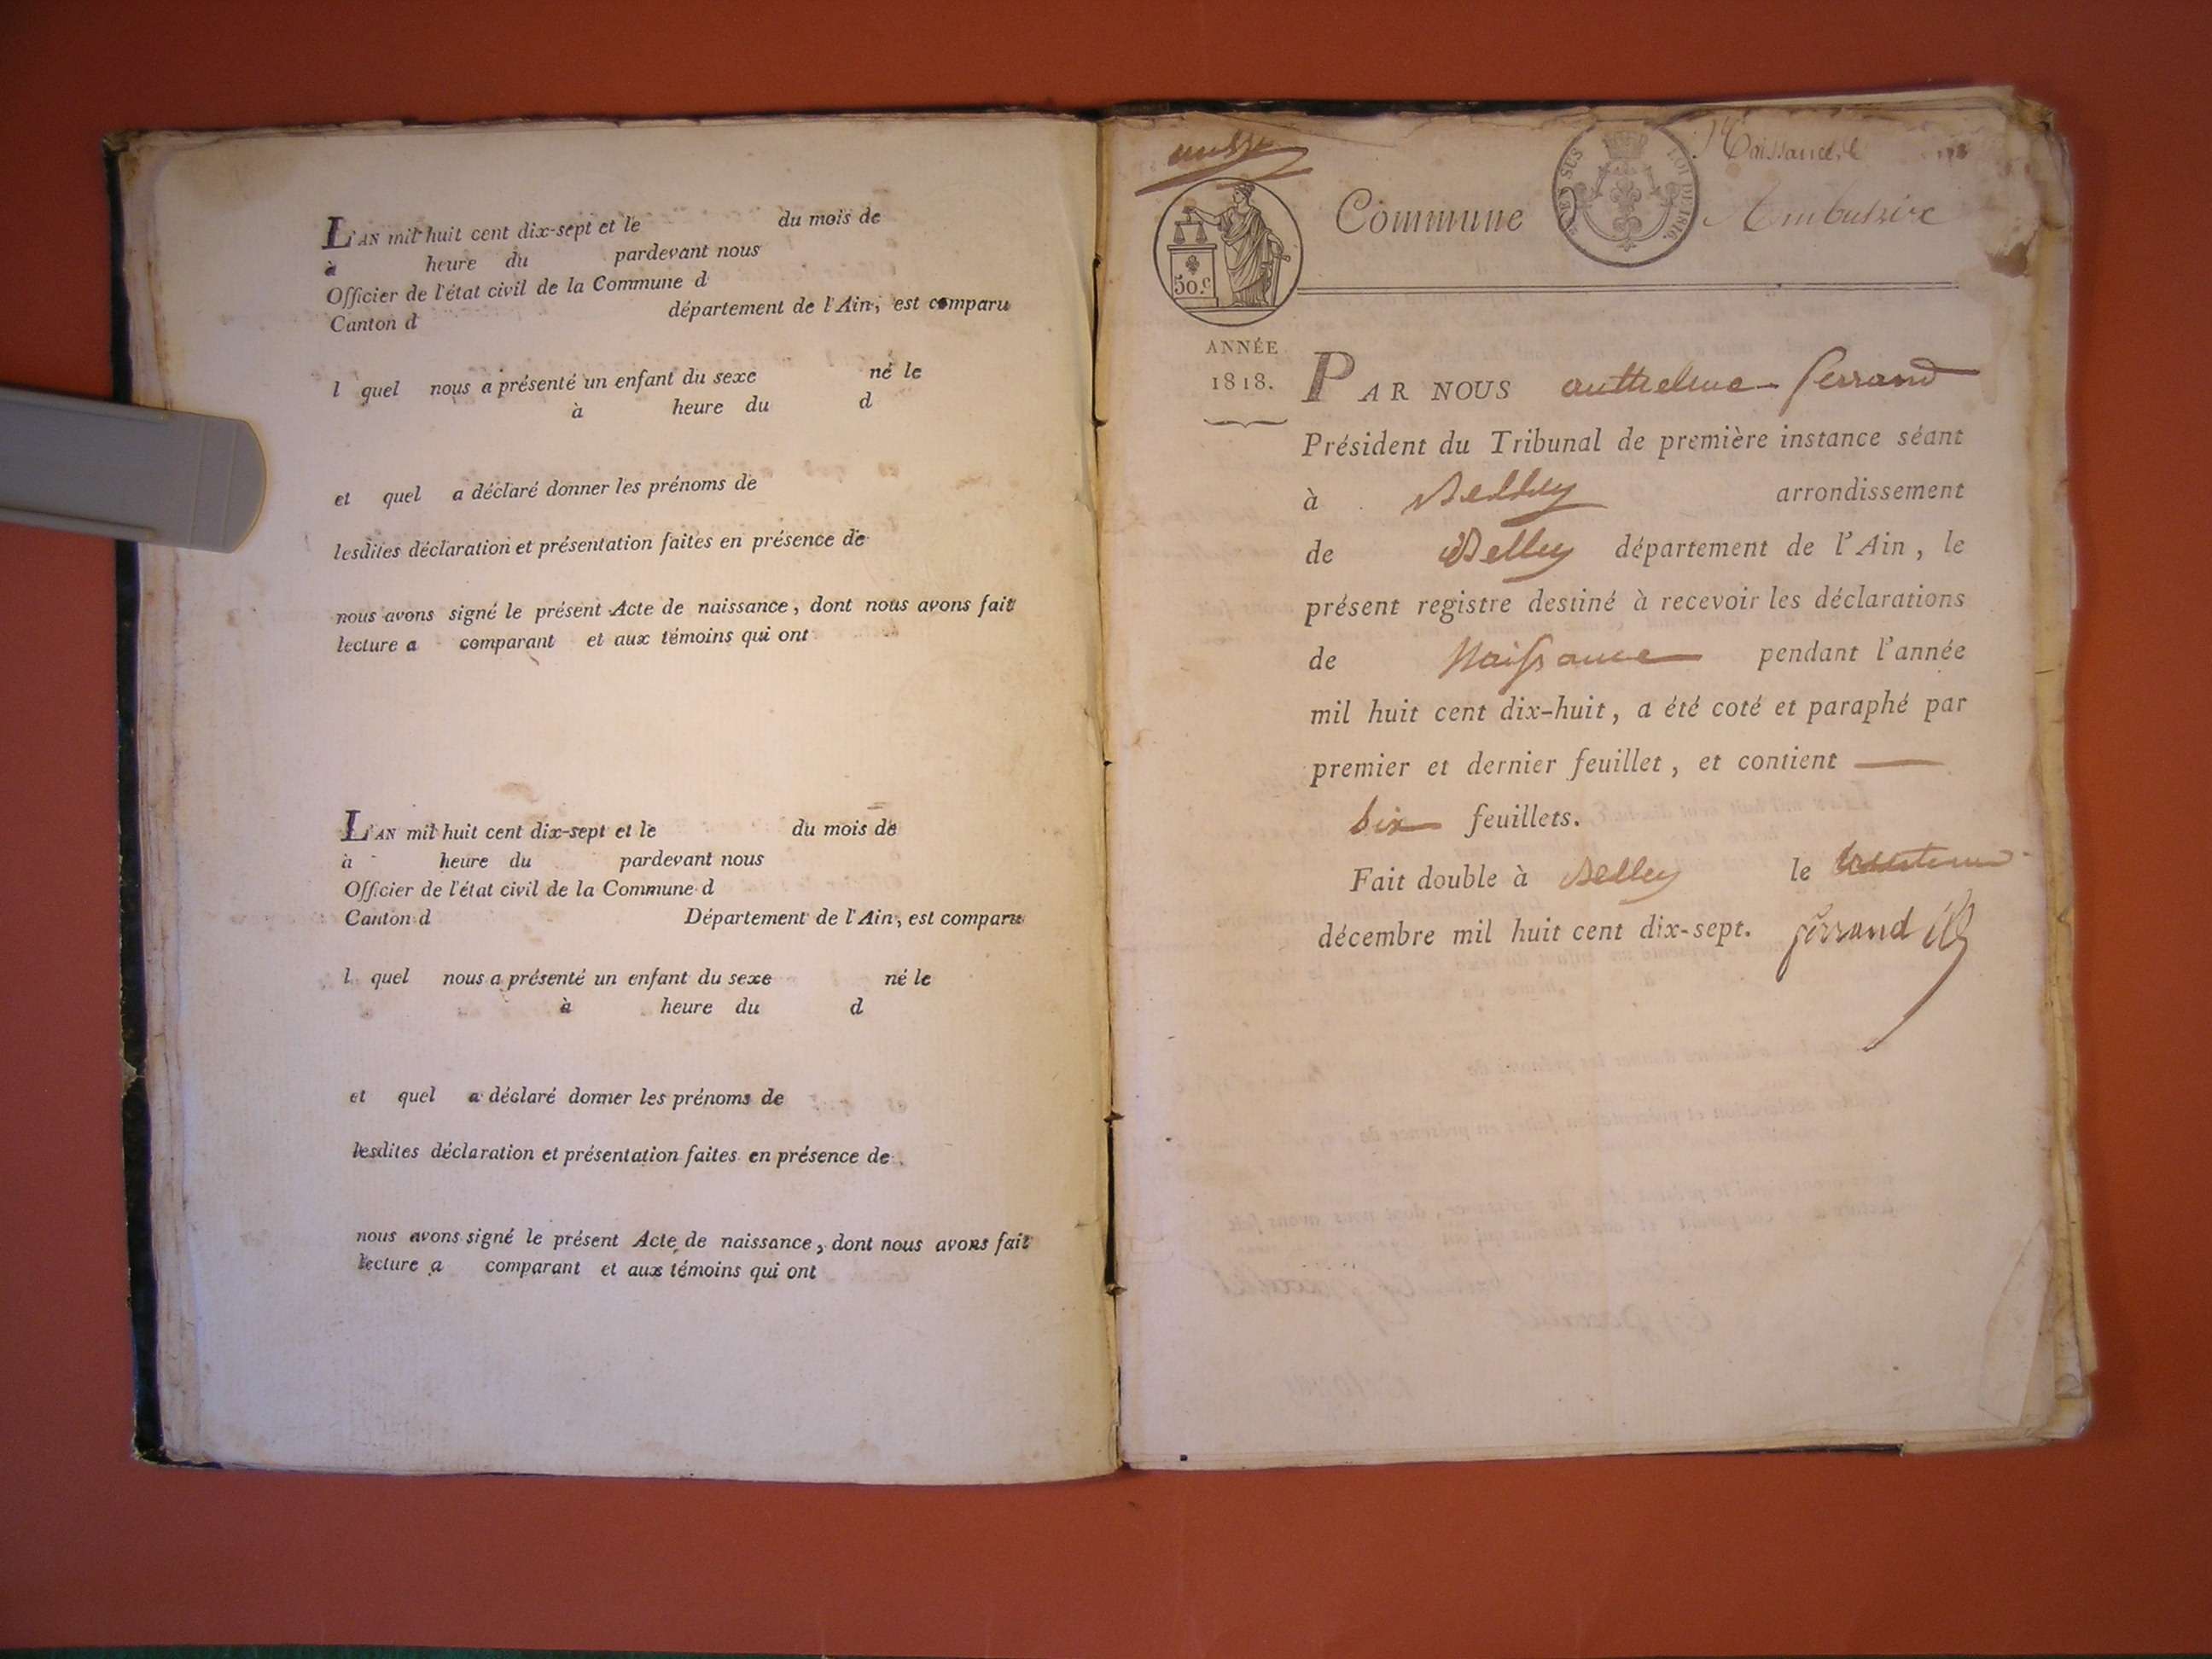 L'AN mil huit cent dix-sept et le du mois de
à heure du pardevant nous
Officier de l'état civil de la Commune d
Canton d département de l'Ain, est comparu
l quel nous a présenté un enfant du sexe né le
à heure du d
et quel a déclaré donner les prénoms de
lesdites déclaration et présentation faites en présence de
nous avons signé le présent Acte de naissance, dont nous avons fait
lecture a comparant et aux témoins qui ont
L'AN mil huit cent dix-sept et le du mois de
à heure du pardevant nous
Officier de l'état civil de la Commune d
Canton d Département de l'Ain, est comparu
l quel nous a présenté un enfant du sexe né le
à heure du d
et quel a déclaré donner les prénoms de
lesdites déclaration et présentation faites en présence de
nous avons signé le présent Acte de naissance, dont nous avons fait
lecture a comparant et aux témoins qui ont
Naissance
Commune
LOI DE 1816.
50.c
ANNÉE
1818.
PAR NOUS anthelme ferrand
Président du Tribunal de première instance séant
à Belley arrondissement
de Belley département de l'Ain, le
présent registre destiné à recevoir les déclarations
de Naissance pendant l'année
mil huit cent dix-huit, a été coté et paraphé par
premier et dernier feuillet, et contient
six feuillets.
Fait double à Belley le
décembre mil huit cent dix-sept. ferrand